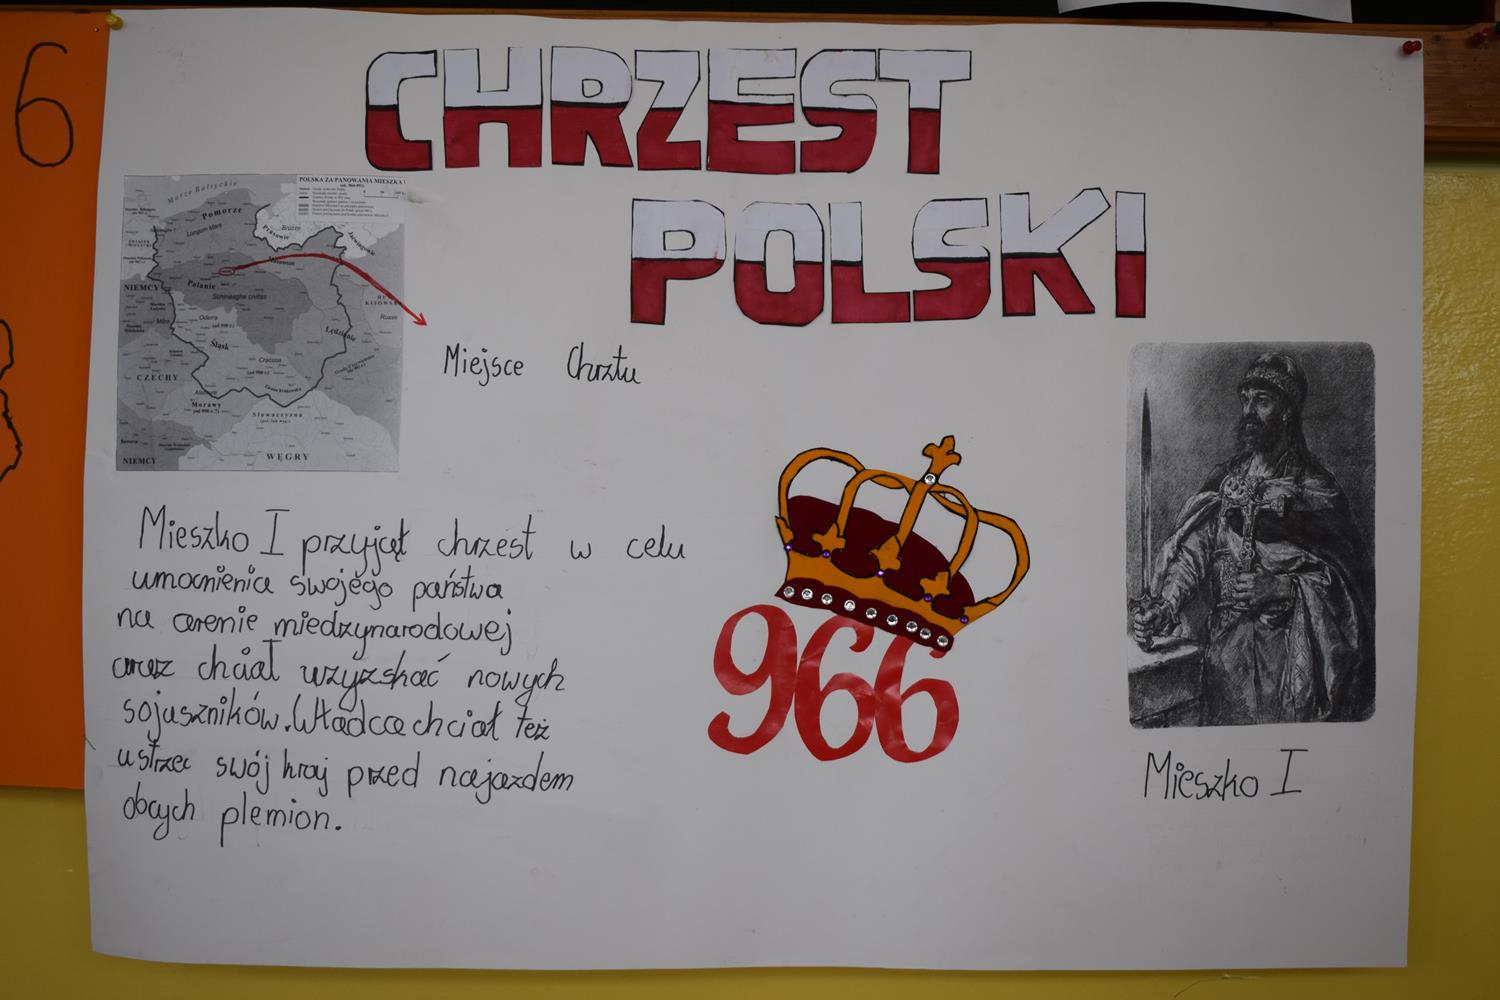 6
CHRZEST
POLSKI
POLSKA ZA PANOWANIA MIESZKA I
Morze Bałtyckie
Pomorze
Prusowie
NIEMCY
Polanie
Schinesghe civitas
Śląsk
Lędzianie
CZECHY
Morawy
Słowaczyzna
WĘGRY
NIEMCY
Miejsce Chrztu
Mieszko I przyjął chrzest w celu
umocnienia swojego państwa
na arenie międzynarodowej
oraz chciał uzyzskać nowych
sojuszników. Władca chciał też
ustrzec swój kraj przed najazdem
obcych plemion.
966
Mieszko I